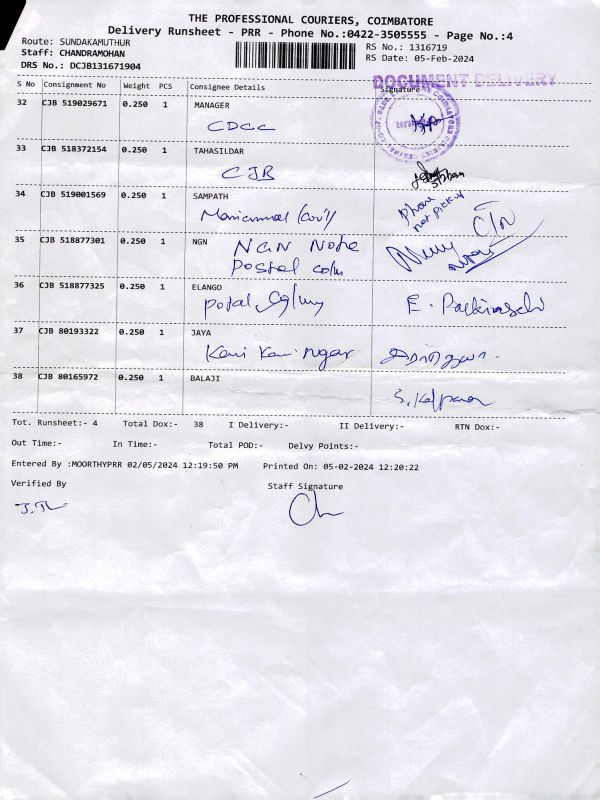 THE PROFESSIONAL COURIERS, COIMBATORE
Delivery Runsheet - PRR - Phone No.:0422-3505555 - Page No.:4
Route: SUNDAKAMUTHUR
Staff: CHANDRAMOHAN
DRS No.: DCJB131671904
RS No.: 1316719
RS Date: 05-Feb-2024
DOCUMENT DELIVERY
S No Consignment No Weight PCS Consignee Details Signature
32 CJB 519029671 0.250 1 MANAGER
CDCC
33 CJB 518372154 0.250 1 TAHASILDAR
CJB
34 CJB 519001569 0.250 1 SAMPATH
Phone not pickup
35 CJB 518877301 0.250 1 NGN
NGN Note
Postal colm
36 CJB 518877325 0.250 1 ELANGO
E.
37 CJB 80193322 0.250 1 JAYA
Nagar
38 CJB 80165972 0.250 1 BALAJI
S. Kalpana
Tot. Runsheet:- 4 Total Dox:- 38 I Delivery:- II Delivery:- RTN Dox:-
Out Time:- In Time:- Total POD:- Delvy Points:-
Entered By :MOORTHYPRR 02/05/2024 12:19:50 PM Printed On: 05-02-2024 12:20:22
Verified By Staff Signature